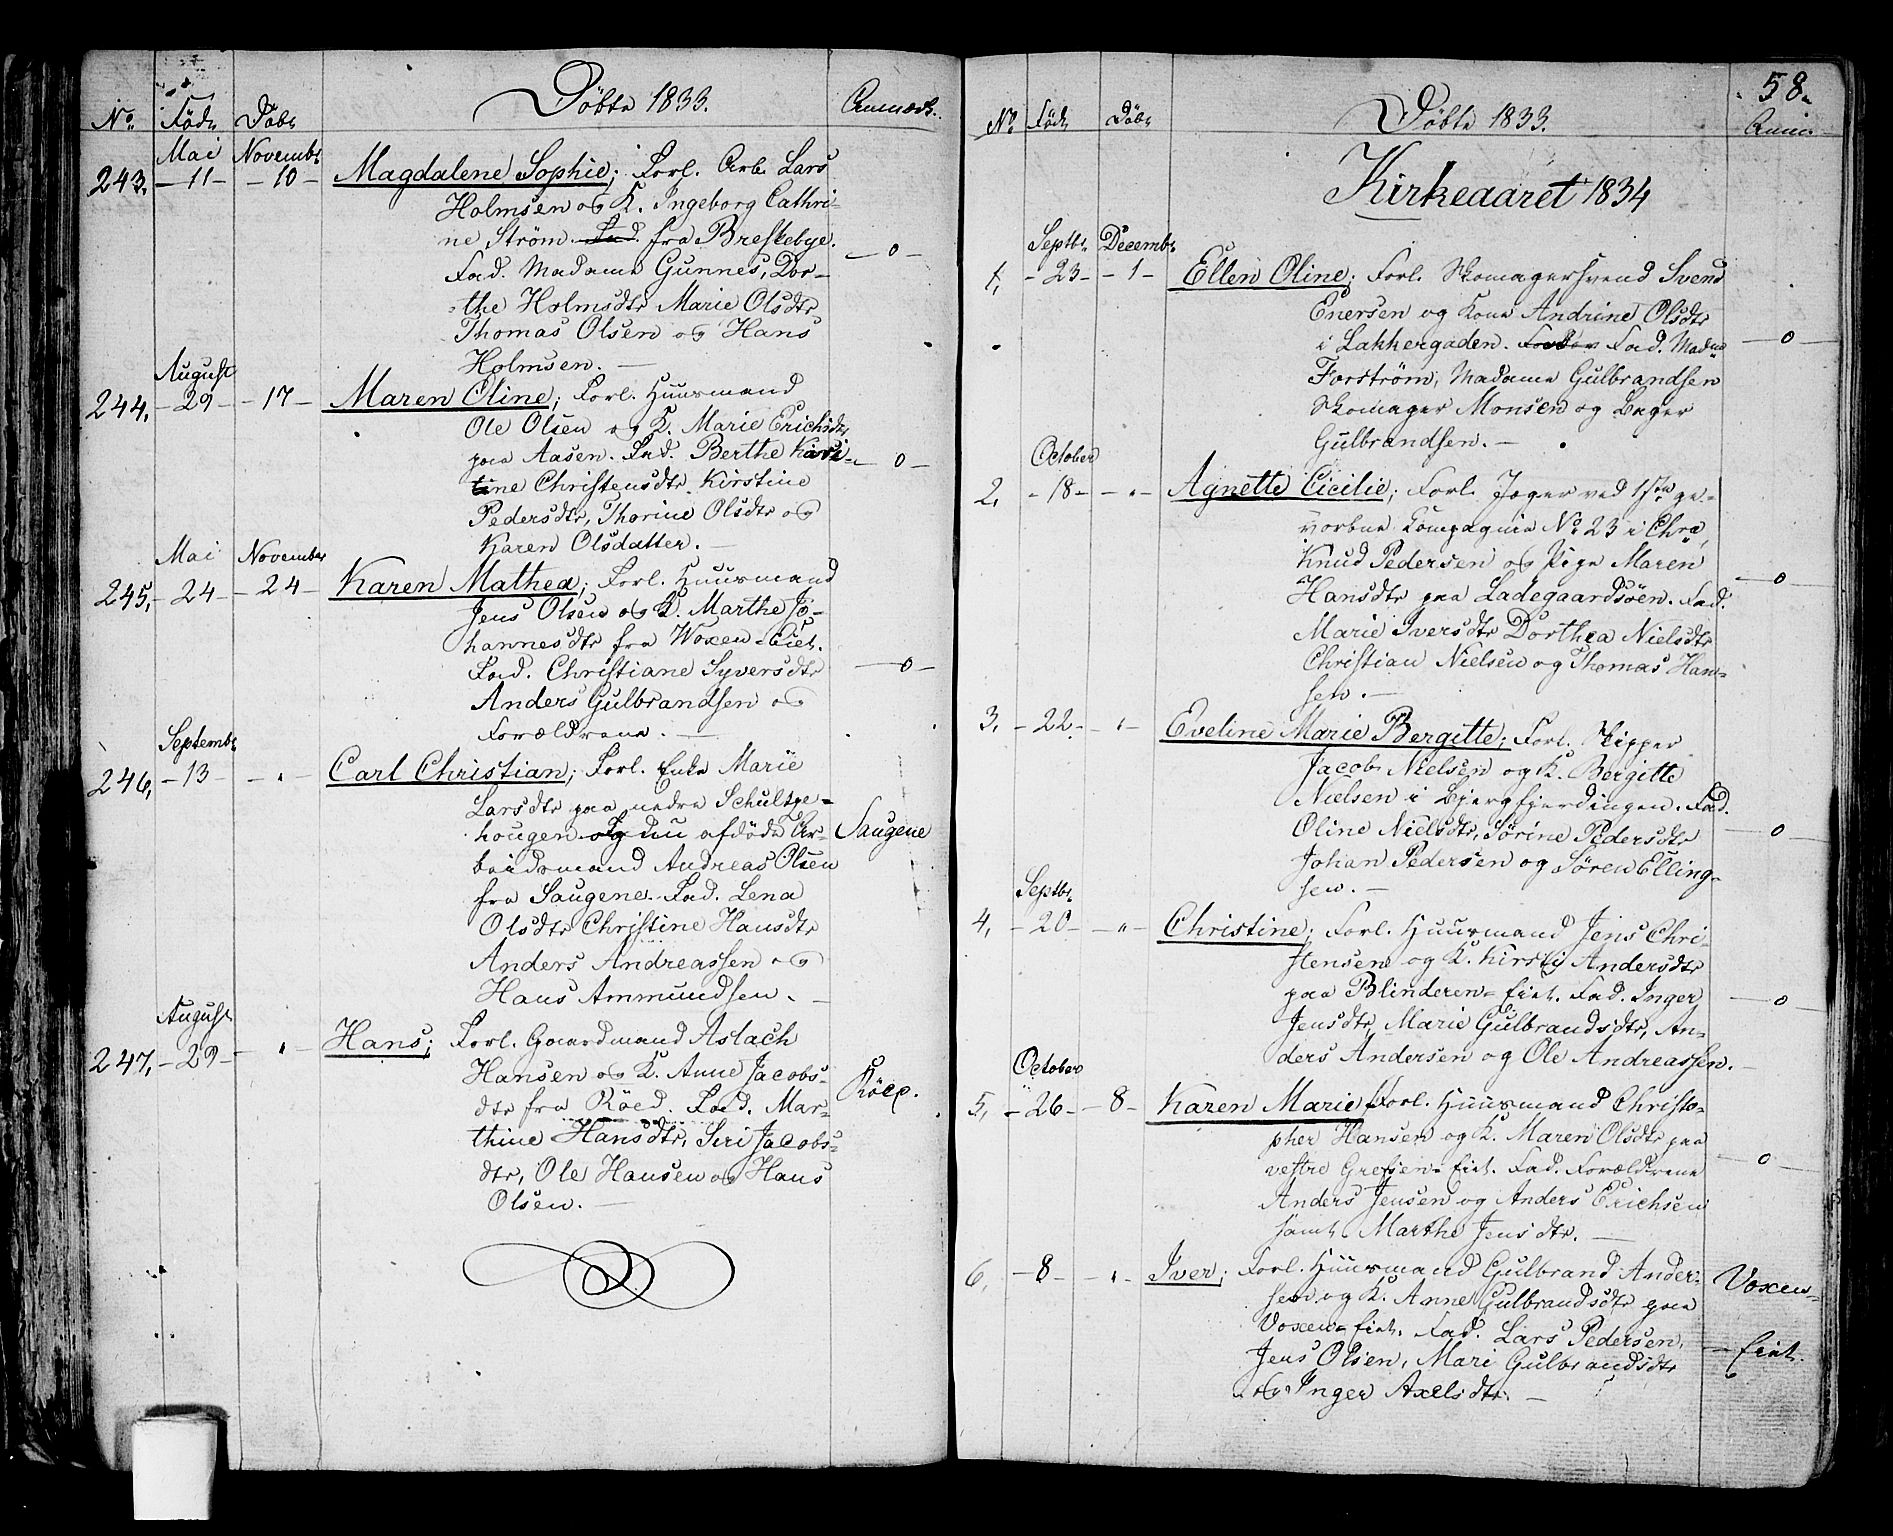 Døbte 1833.
No. Født Døbt Anmærk.
Mai Novembr
243. – 11 – – 10 – Magdalene Sophie; Forl. Arb. Lars
Holmsen og K. Ingeborg Cathri-
ne Strøm fra Breskebye.
Fad. Madame Gunnes, Dor-
the Holmsdtr Marie Olsdtr
Thomas Olsen og Hans
Holmsen. – 0 –
August
244. – 29 – 17 – Maren Oline; Forl. Huusmand
Ole Olsen og K. Marie Erichsdtr
paa Aasen. Fad. Berthe Kirs-
tine Christensdtr Kirstine
Pedersdtr, Thorine Olsdtr og
Karen Olsdatter. – 0 –
Mai November
245. – 24 – – 24 – Karen Mathea; Forl. Huusmand
Jens Olsen og K. Marthe Jo-
hannesdtr fra Woxen-Eiet.
Fad. Christiane Syversdtr
Anders Gulbrandsen og
Forældrene. – 0 –
Septembr
246. – 13 – – " – Carl Christian; Forl. Enke Marie
Larsdtr paa nedre Schultze-
hougen og nu afdøde Ar-
beidsmand Andreas Olsen
fra Saugene. Fad. Lena
Olsdtr Christine Hansdtr
Anders Andreassen og
Hans Ammundsen. –
Saugene
August
247. – 29 – – " – Hans; Forl. Gaardmand Aslach
Hansen og K. Anne Jacobs-
dtr fra Röed. Fad. Mar-
thine Hansdtr, Siri Jacobs-
dtr, Ole Hansen og Hans
Olsen. –
58.
Døbte 1833.
No Født Døbt Anm.
Kirkeaaret 1834
Septbr. Decembr
1. – 23 – – 1 – Ellen Oline; Forl. Skomagersvend Svend
Enersen og Kone Andrine Olsdtr
i Lakkergaden. Fad. Madme
Forstrøm, Madame Gulbrandsen
Skomager Monsen og Bager
Gulbrandsen. – 0 –
October
2. – 18 – – " – Agnette Cicilie; Forl. Jæger ved 1ste ge-
vorbne Compagnie No 23 i Chra,
Knud Pedersen og Pige Maren
Hansdtr paa Ladegaardsöen. Fad.
Marie Iversdtr Dorthea Nielsdtr
Christian Nielsen og Thomas Han-
sen. – 0 –
3. – 22 – " – Eveline Marie Bergitte; Forl. Skipper
Jacob Nielsen og K. Bergitte
Nielsen i Bjergfjerdingen. Fad.
Oline Nielsdtr, Sörine Pedersdtr
Johan Pedersen og Sören Elling-
sen. – 0 –
Septbr
4. – 20 – – " – Christine; Forl. Huusmand Jens Chri-
stensen og K. Kirsti Andersdtr
paa Blinderen-Eiet. Fad. Inger
Jensdtr, Marie Gulbrandsdtr, An-
ders Andersen og Ole Andreassen. – 0 –
October
5. – 26 – – 8 – Karen Marie; Forl. Huusmand Christo-
pher Hansen og K. Maren Olsdtr paa
vestre Grefsen-Eiet. Fad. Forældrene
Anders Jensen og Anders Erichsen
samt Marthe Jensdtr. – 0 –
6. – 8 – – " – Iver; Forl. Huusmand Gulbrand Ander-
sen og K. Anne Gulbrandsdtr paa
Voxen-Eiet. Fad. Lars Pedersen,
Jens Olsen, Mari Gulbrandsdtr
og Inger Axelsdtr. –
Voxen-
Eiet.